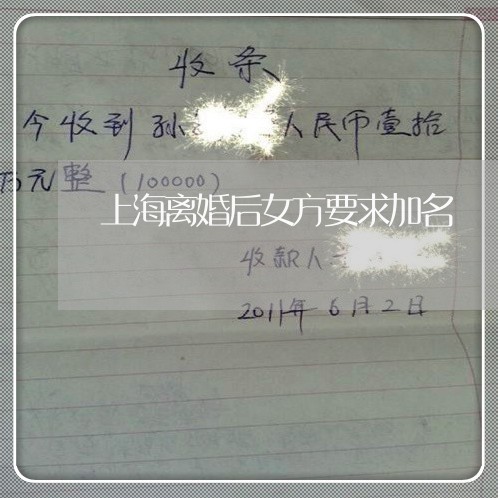 收条
今收到孙 人民币壹拾
万元整（100000）
上海离婚后女方要求加名
收款人
2011年6月2日